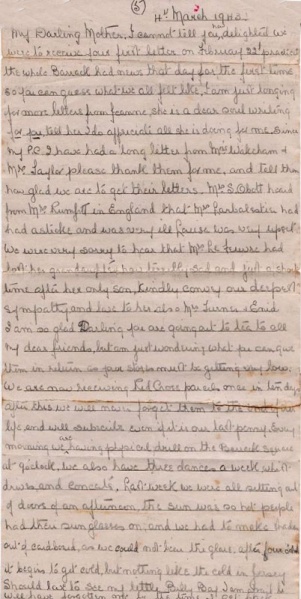 (5)
4th March 1943.
My Darling Mother, I cannot tell you, delighted we
were to receive your first letter on February 22nd
the whole Barrack had news that day for the first time
so you can guess what we all felt like, I am just longing
for more letters from Jeanne, she is a dear soul writing
for you tell her I do appreciate all she is doing for me. Since
my P.C I have had a long letter from Mrs Walcham &
Mrs Taylor please thank them for me, and tell them
how glad we are to get their letters. Mrs S Abott heard
from Mrs Rumfitt in England that Mrs Larbalestier had
had a stroke and was very ill Louise was very upset
We were very sorry to hear that Mrs Le Feuvre had
lost her and just a short
time after her only son, kindly convey our deepest
sympathy and love to her also Mrs Turner & Enid
I am so glad Darling you are giving out to tea to all
my dear friends, but am just wondering what you can give
them in return as your stores must be getting very low.
We are now receiving Red Cross parcels once in ten days
after this we will never forget them to the end of our
life, and will subscribe even if it is our last penny. Every
morning we are having physical drill on the Barrack Square
at 9 o'clock, we also have three dances a week, whist
drives, and concerts. Last week we were all sitting out
of doors of an afternoon, the sun was so hot people
had their sunglasses on and we had to make
out of cardboard, as we could not bear the glare, after four o'clock
it begins to get cold, but nothing like the cold in Jersey
Should love to see my little Billy Boy I am afraid he
will have forgotten me by the time I get